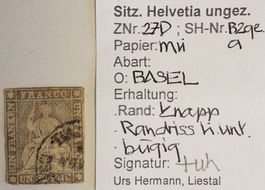 Sitz. Helvetia ungez.
ZNr. 27D ; SH-Nr. B2ge
Papier: mii a
Abart:
O: BASEL
Erhaltung:
Rand: Knapp
. Randriss h. unt.
. bügig
Signatur:
Urs Hermann, Liestal
FRANCO